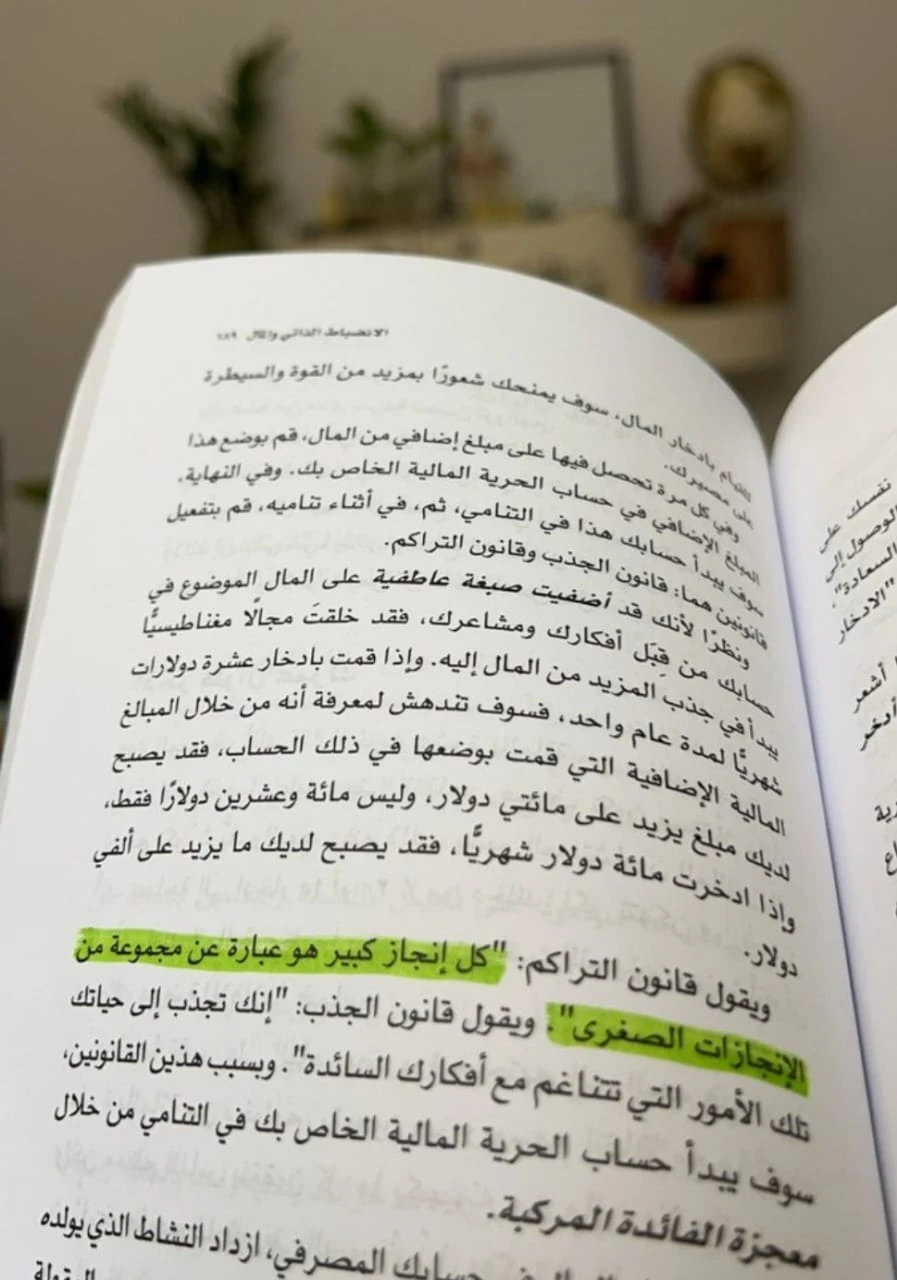 الانضباط الذاتي والمال ١٨٩
للقيام بادخار المال، سوف يمنحك شعورًا بمزيد من القوة والسيطرة
على مصيرك.
وفي كل مرة تحصل فيها على مبلغ إضافي من المال، قم بوضع هذا
المبلغ الإضافي في حساب الحرية المالية الخاص بك. وفي النهاية،
سوف يبدأ حسابك هذا في التنامي، ثم، في أثناء تناميه، قم بتفعيل
قانونين هما: قانون الجذب وقانون التراكم.
ونظرًا لأنك قد أضفيت صبغة عاطفية على المال الموضوع في
حسابك من قِبَل أفكارك ومشاعرك، فقد خلقتَ مجالًا مغناطيسيًّا
يبدأ في جذب المزيد من المال إليه. وإذا قمت بادخار عشرة دولارات
شهريًّا لمدة عام واحد، فسوف تندهش لمعرفة أنه من خلال المبالغ
المالية الإضافية التي قمت بوضعها في ذلك الحساب، فقد يصبح
لديك مبلغ يزيد على مائتي دولار، وليس مائة وعشرين دولارًا فقط،
وإذا ادخرت مائة دولار شهريًّا، فقد يصبح لديك ما يزيد على ألفي
دولار.
ويقول قانون التراكم: "كل إنجاز كبير هو عبارة عن مجموعة من
الإنجازات الصغرى". ويقول قانون الجذب: "إنك تجذب إلى حياتك
تلك الأمور التي تتناغم مع أفكارك السائدة". وبسبب هذين القانونين،
سوف يبدأ حساب الحرية المالية الخاص بك في التنامي من خلال
معجزة الفائدة المركبة.
حسابك المصرفي، ازداد النشاط الذي يولده
نفسك على
الوصول إلى
السعادة".
"الادخار
أشعر
أدخر